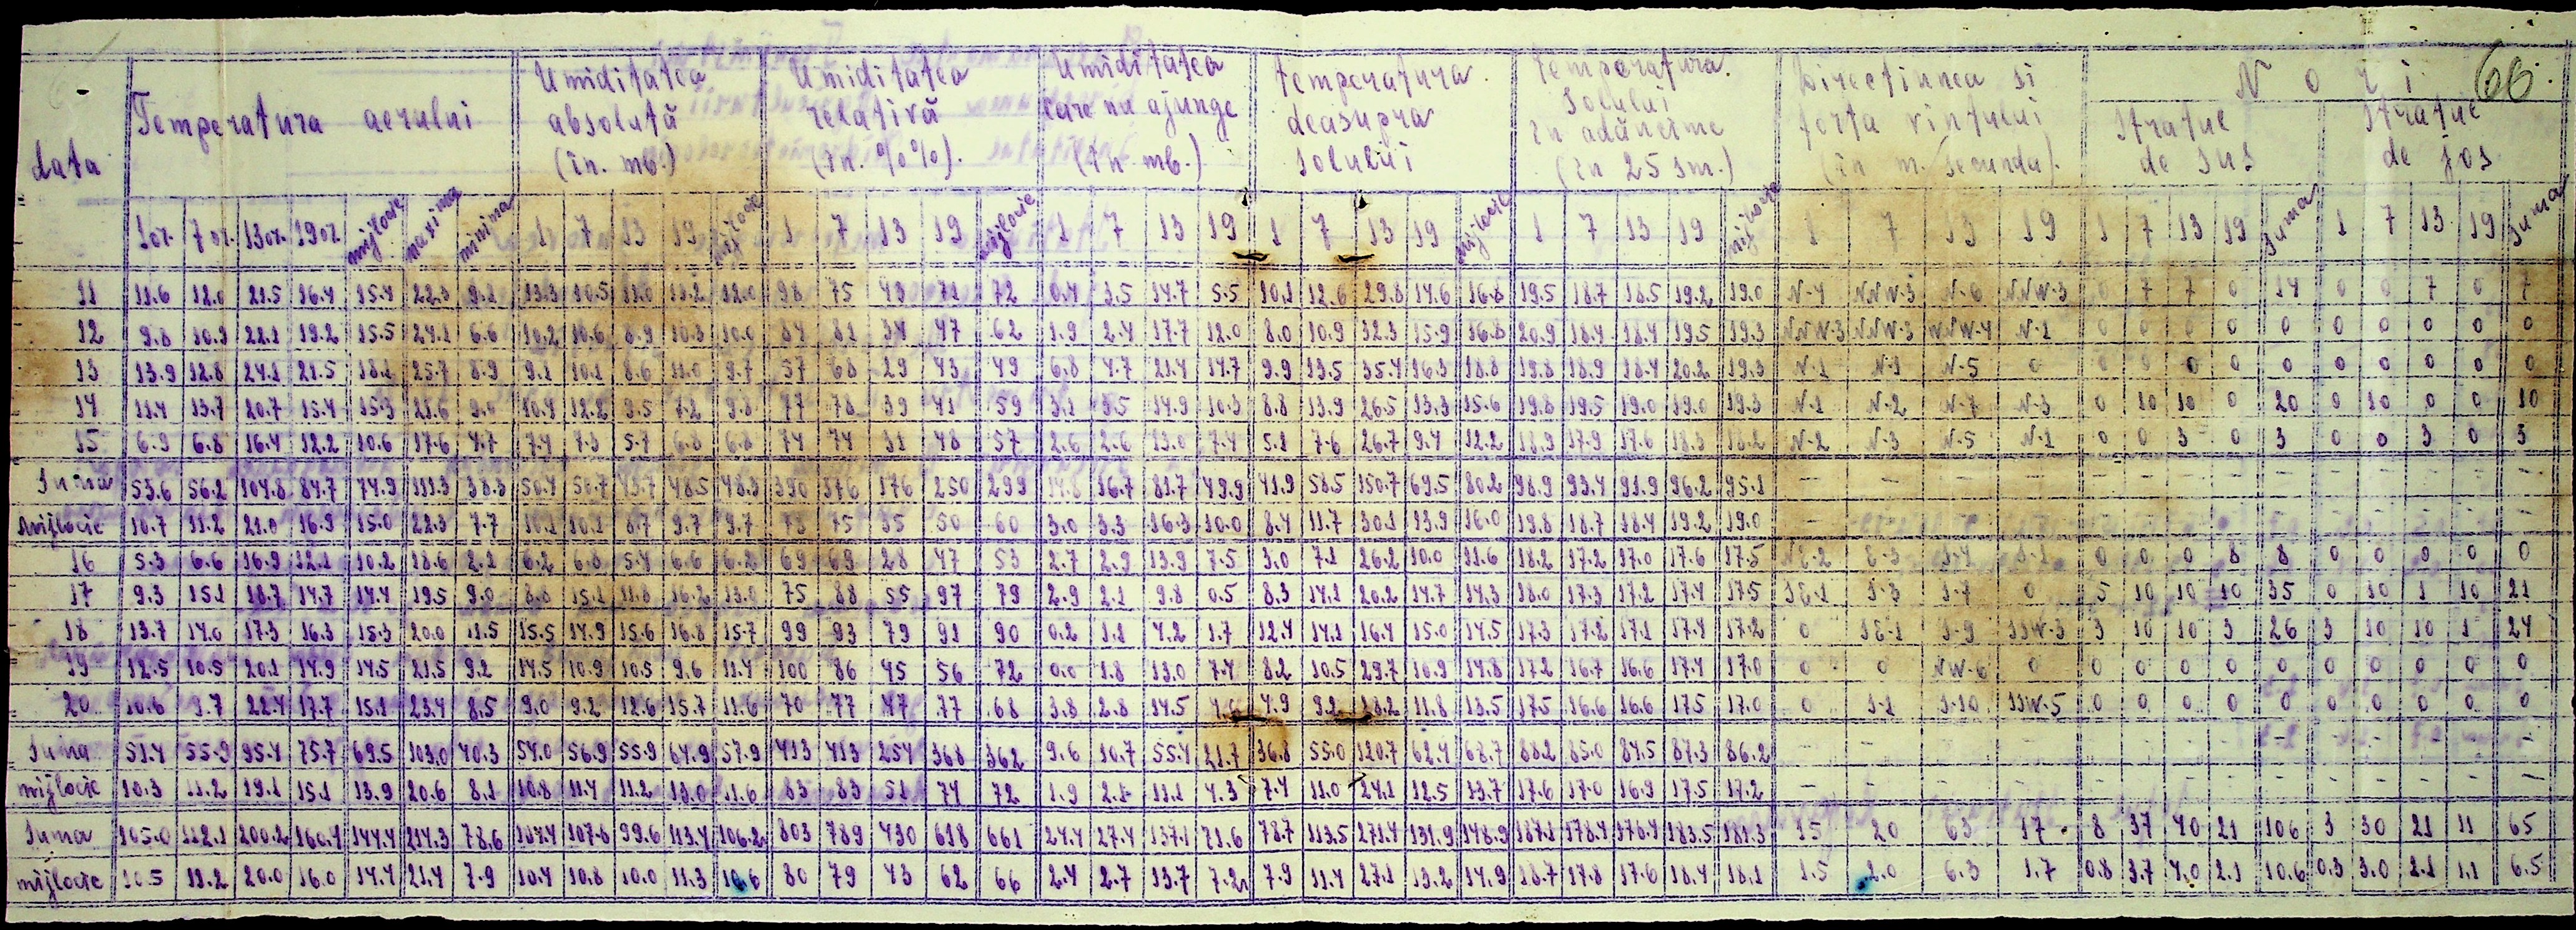 66.
data
Temperatura aerului
Umiditatea absolută (în. mb.)
Umiditatea relativă (în. %%).
Umiditatea care nu ajunge (în mb.)
temperatura deasupra solului
temperatura solului în adâncime (în 25 sm.)
Direcțiunea si forța vîntului (în m. secunda).
N o r i
stratul de sus
stratul de jos
1 or. 7 or. 13 or. 19 or. mijlocie maxima minima 1 7 13 19 mijlocie 1 7 13 19 mijlocie 1 7 13 19 1 7 13 19 mijlocie 1 7 13 19 mijlocie 1 7 13 19 1 7 13 19 suma 1 7 13 19 suma
11 11.6 12.0 21.5 16.4 15.4 22.3 9.1 13.3 10.5 11.0 11.2 12.0 98 75 43 71 72 0.4 3.5 14.7 5.5 10.1 12.6 29.8 14.6 16.8 19.5 18.7 18.5 19.2 19.0 N-4 NNW-3 N-6 NNW-3 0 7 7 0 14 0 0 7 0 7
12 9.8 10.9 22.1 19.2 15.5 24.1 6.6 10.2 10.6 8.9 10.3 10.0 84 81 34 47 62 1.9 2.4 17.7 12.0 8.0 10.9 32.3 15.9 16.8 20.9 18.4 18.4 19.5 19.3 NNW-3 NNW-3 NNW-4 N-1 0 0 0 0 0 0 0 0 0 0
13 13.9 12.8 24.1 21.5 18.1 25.7 8.9 9.1 10.1 8.6 11.0 9.7 57 68 29 43 49 6.8 4.7 21.4 14.7 9.9 13.5 35.4 16.3 18.8 19.8 18.9 18.4 20.2 19.3 N-1 N-1 N-5 0 0 0 0 0 0 0 0 0 0 0
14 11.4 13.7 20.7 15.4 15.3 21.6 9.0 10.4 12.2 9.5 7.2 9.8 77 78 39 41 59 3.1 3.5 14.9 10.3 8.8 13.9 26.5 13.3 15.6 19.8 19.5 19.0 19.0 19.3 N-1 N-2 N-7 N-3 0 10 10 0 20 0 10 0 0 10
15 6.9 6.8 16.4 12.2 10.6 17.6 4.7 7.4 7.3 5.7 6.8 6.8 74 74 31 48 57 2.6 2.6 13.0 7.4 5.1 7.6 26.7 9.4 12.2 18.9 17.9 17.6 18.3 18.2 N-2 N-3 N-5 N-1 0 0 3 0 3 0 0 3 0 3
Suma 53.6 56.2 104.8 84.7 74.9 111.3 38.3 50.4 50.7 43.7 48.5 48.3 390 376 176 250 299 14.8 16.7 81.7 49.9 41.9 58.5 150.7 69.5 80.2 98.9 93.4 91.9 96.2 95.1 - - - - - - - - - - - - - -
mijlocie 10.7 11.2 21.0 16.9 15.0 22.3 7.7 10.1 10.1 8.7 9.7 9.7 78 75 35 50 60 3.0 3.3 16.3 10.0 8.4 11.7 30.1 13.9 16.0 19.8 18.7 18.4 19.2 19.0 - - - - - - - - - - - - - -
16 5.3 6.6 16.9 12.1 10.2 18.6 2.1 6.2 6.8 5.4 6.6 6.2 69 69 28 47 53 2.7 2.9 13.9 7.5 3.0 7.1 26.2 10.0 11.6 18.2 17.2 17.0 17.6 17.5 NE-2 E-3 S-4 S-1 0 0 0 8 8 0 0 0 0 0
17 9.3 15.1 18.7 14.7 14.4 19.5 9.0 8.8 15.1 11.8 16.2 13.0 75 88 55 97 79 2.9 2.1 9.8 0.5 8.3 14.1 20.2 14.7 14.3 18.0 17.3 17.2 17.4 17.5 SE-1 S-3 S-7 0 5 10 10 10 35 0 10 1 10 21
18 13.7 14.0 17.3 16.3 15.3 20.0 11.5 15.5 14.9 15.6 16.8 15.7 99 93 79 91 90 0.2 1.1 4.2 1.7 12.4 14.1 16.4 15.0 14.5 17.3 17.2 17.1 17.4 17.2 0 SE-1 S-9 SSW-3 3 10 10 3 26 3 10 10 1 24
19 12.5 10.5 20.1 14.9 14.5 21.5 9.2 14.5 10.9 10.5 9.6 11.4 100 86 45 56 72 0.0 1.8 13.0 7.4 8.2 10.5 29.7 10.9 14.8 17.2 16.7 16.6 17.4 17.0 0 0 NW-6 0 0 0 0 0 0 0 0 0 0 0
20 10.6 9.7 22.4 17.7 15.1 23.4 8.5 9.0 9.2 12.6 15.7 11.6 70 77 47 77 68 3.8 2.8 14.5 4.6 4.9 9.2 18.2 11.8 13.5 17.5 16.6 16.6 17.5 17.0 0 S-1 S-10 SSW-5 0 0 0 0 0 0 0 0 0 0
Suma 51.4 55.9 95.4 75.7 69.5 103.0 40.3 54.0 56.9 55.9 64.9 57.9 413 413 254 368 362 9.6 10.7 55.4 21.7 36.8 55.0 120.7 62.4 68.7 88.2 85.0 84.5 87.3 86.2 - - - - - - - - - - - - - -
mijlocie 10.3 11.2 19.1 15.1 13.9 20.6 8.1 10.8 11.4 11.2 13.0 11.6 83 83 51 74 72 1.9 2.1 11.1 4.3 7.4 11.0 24.1 12.5 13.7 17.6 17.0 16.9 17.5 17.2 - - - - - - - - - - - - - -
Suma 105.0 112.1 200.2 160.4 144.4 214.3 78.6 104.4 107.6 99.6 113.4 106.2 803 789 430 618 661 24.4 27.4 137.1 71.6 78.7 113.5 271.4 131.9 148.9 187.1 178.4 176.4 183.5 181.3 15 20 63 17 8 37 40 21 106 3 30 21 11 65
mijlocie 10.5 11.2 20.0 16.0 14.4 21.4 7.9 10.4 10.8 10.0 11.3 10.6 80 79 43 62 66 2.4 2.7 13.7 7.2 7.9 11.4 27.1 13.2 14.9 18.7 17.8 17.6 18.4 18.1 1.5 2.0 6.3 1.7 0.8 3.7 4.0 2.1 10.6 0.3 3.0 2.1 1.1 6.5